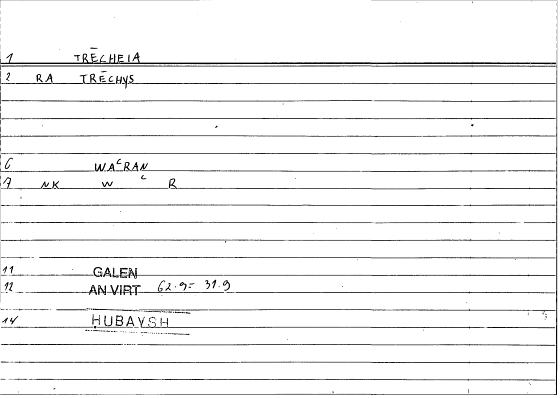 1 TRĒCHEIA
2 RA TRĒCHYS
6 WAᶜRAN
7 NK W ᶜ R
11 GALEN
12 AN VIRT 62.9= 31.9
14 ḤUBAYSH